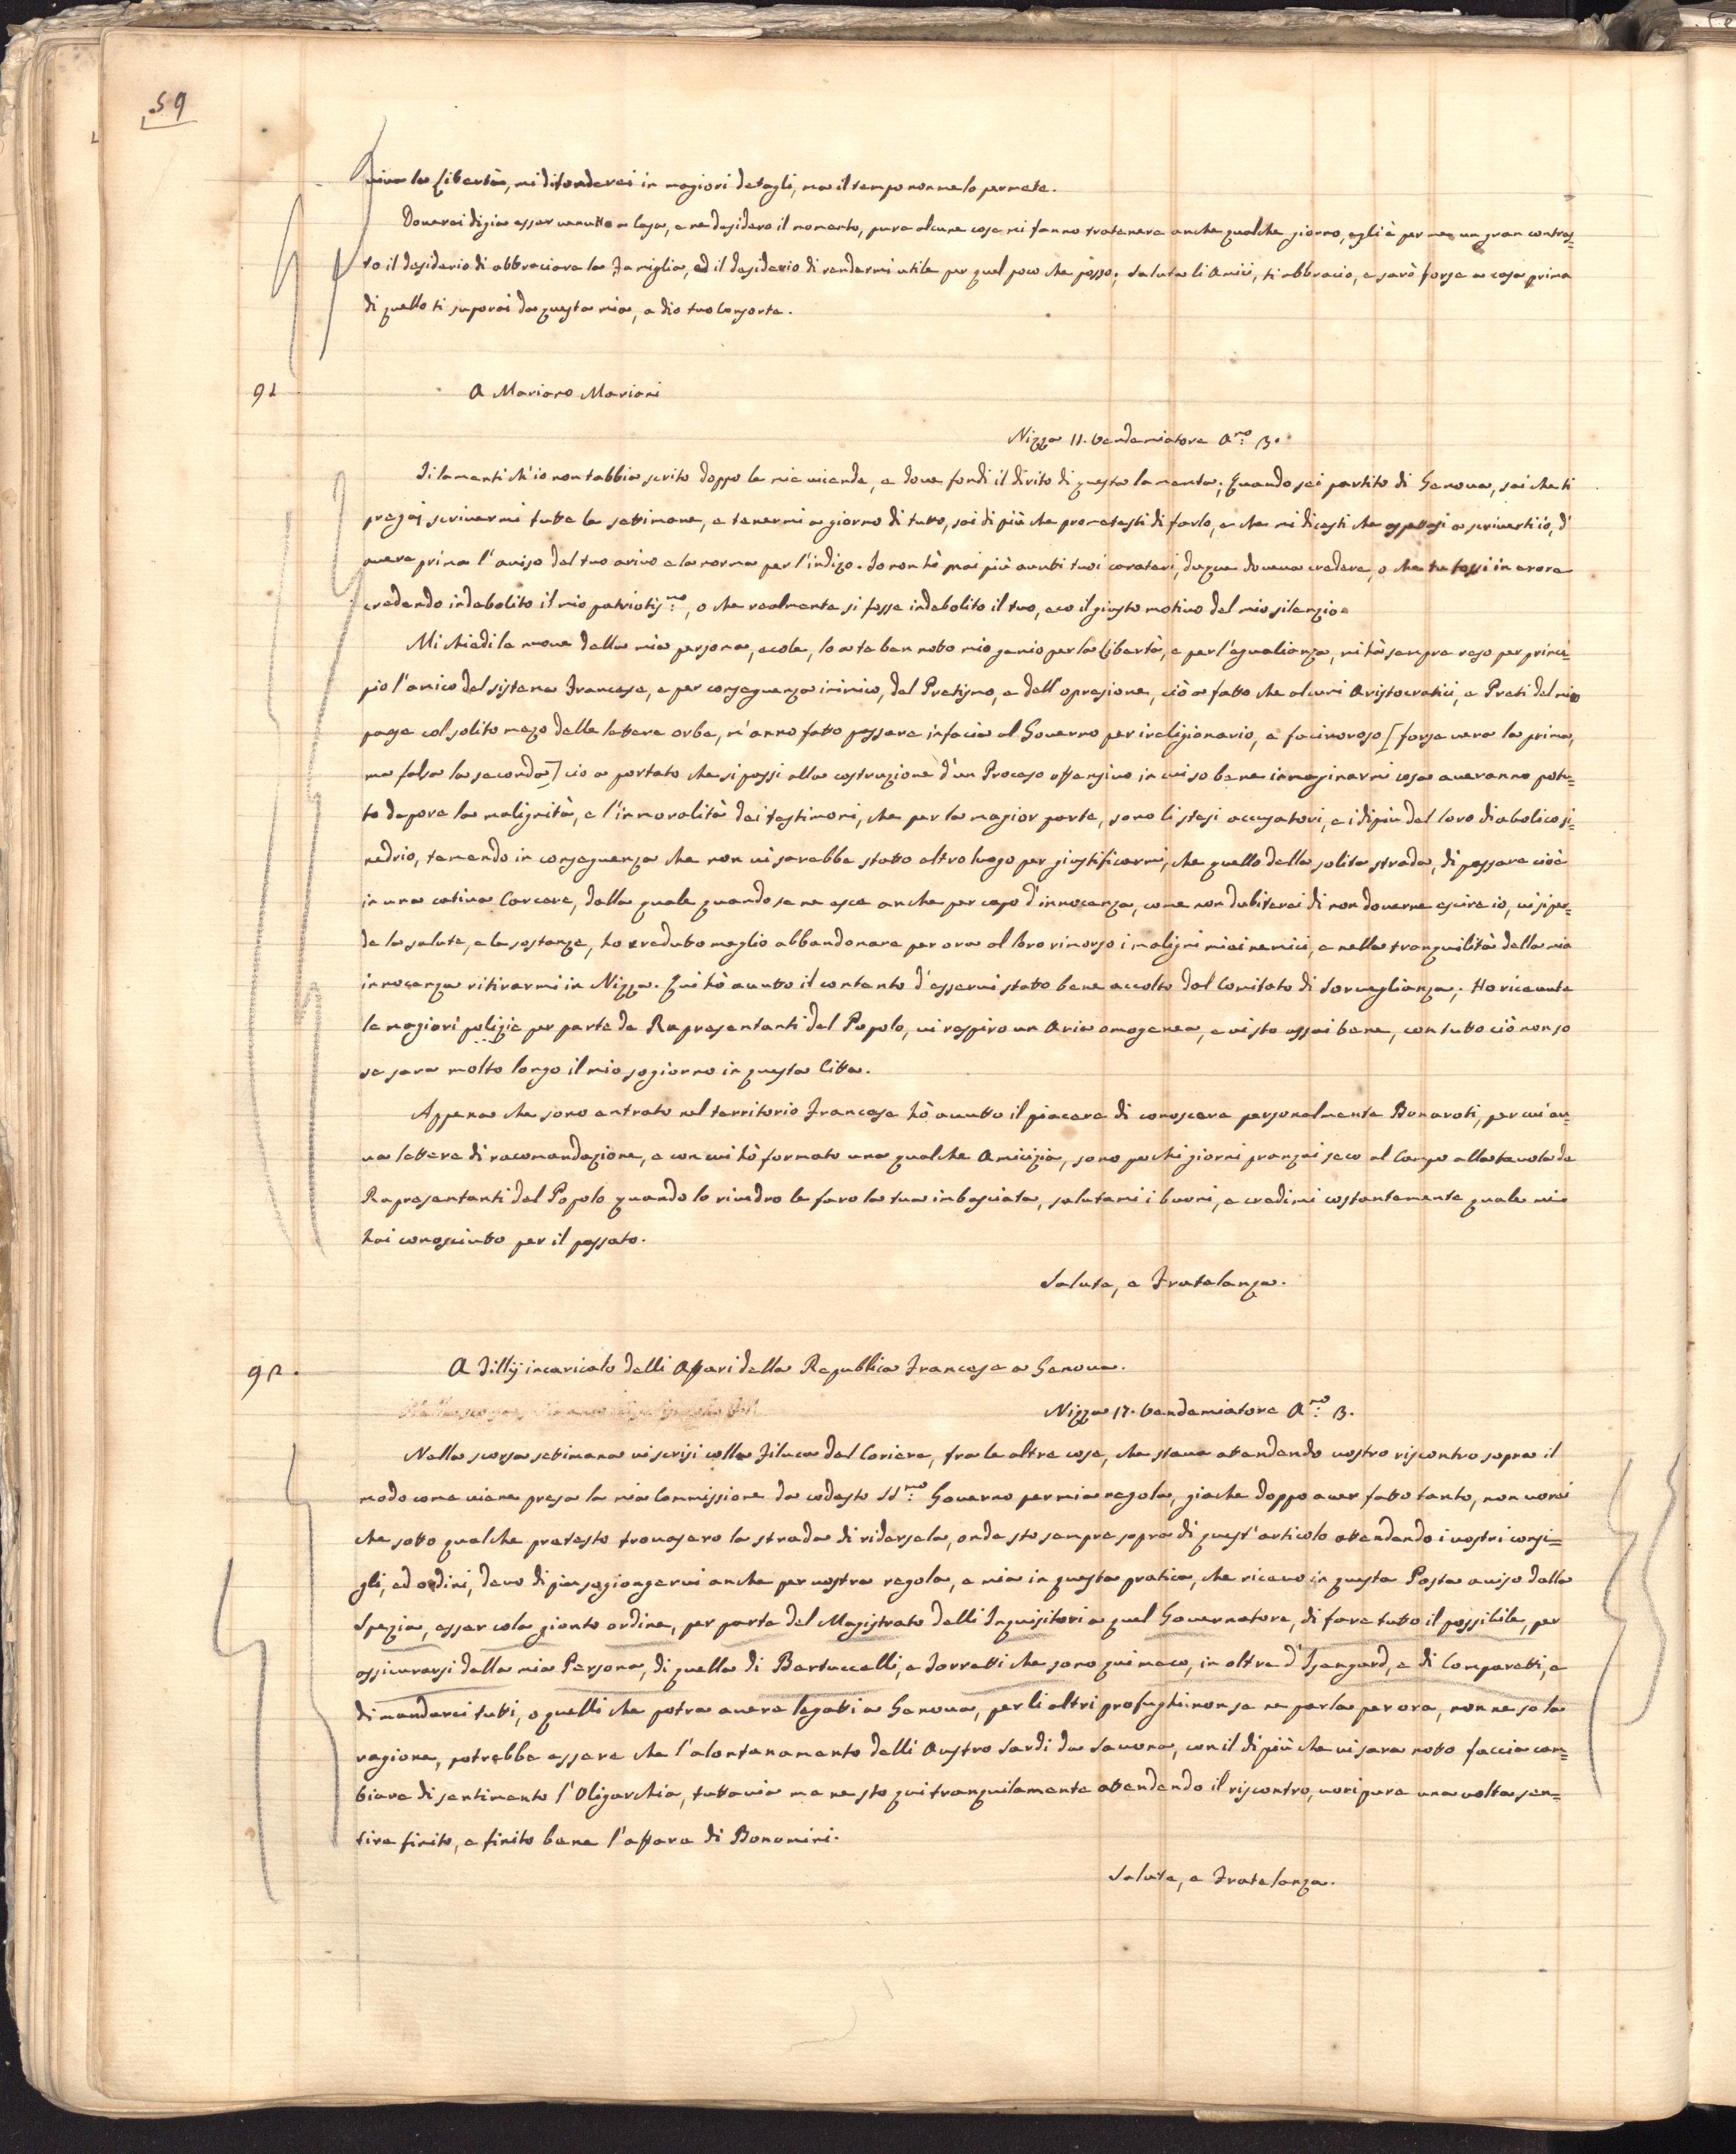 59
viva la Libertà, mi difonderei in magiori detagli, ma il tempo non me lo permete.
Doverei digia esser venutto a Casa, e ne desidero il momento, pure alcune cose mi fanno tratenere anche qualche giorno, egli è per me un gran contras=
to il desiderio di abbraciare la Famiglia, ed il desiderio di rendermi utile per quel poco che posso; saluta li Amici, ti abbracio, e sarò forse a casa prima
di quello ti suporai da questa mia, a dio tuo Consorte.
91 A Mariano Mariani
Nizza 11. Vendemiatore A.no 3.
Ti lamenti ch'io non t'abbia scrito doppo le mie vicende, e dove fondi il dirito di questa lamenta; Quando sei partito di Genova, sai che ti
pregai scrivermi tutte le settimane, e tenermi a giorno di tutto, sai di più che prometesti di farlo, e che mi dicesti che aspettasi a scriverti io, d'
avere prima l'aviso del tuo arivo e la norma per l'indizo. Io non hò mai più avutti tuoi carateri, duque doveva credere, o che tu fossi in erore
credendo indebolito il mio patriotis.mo, o che realmente si fosse indebolito il tuo, eco il giusto motivo del mio silenzio.
Mi chiedi le nuove della mia persona, ecole, lo a te ben noto mio genio per la Libertà, e per l'egualianza, mi hà sempre reso per princi=
pio l'amico del sistema Francese, e per conseguenza inimico, del Pretismo, e dell'opresione, ciò a fatto che alcuni Aristocratici, e Preti del mio
paese col solito mezo delle lettere orbe, m'anno fatto passare in facia al Governo per ireligionario, e facinoroso [forse vera la prima,
ma falsa la seconda] cio a portato che si passi alla costruzione d'un Proceso offensivo in cui so bene immaginarmi cosa averanno potu=
to depore la malignità, e l'immoralità dei testimoni, che per la magior parte, sono li stesi accusatori, e i dipiù del loro diabolico si=
nedrio, temendo in conseguenza che non vi sarebbe statto altro luogo per giustificarmi, che quello della solita strada, di passare cioè
in una cativa Carcere, dalla quale quando se ne esce anche per capo d'innocenza, come non dubiterei di non doverne escire io, vi si per=
de la salute, e le sostanze, ho creduto meglio abbandonare per ora al loro rimorso i maligni miei nemici, e nella tranquilità della mia
innocenza ritirarmi in Nizza. Qui hò avutto il contento d'esservi statto bene accolto dal Comitato di Sorveglianza; Ho riceaute
le magiori polizie per parte de Rapresentanti del Popolo, vi respiro un Aria omogenea, e vi sto assai bene, con tutto ciò non so
se sara molto longo il mio sogiorno in questa Citta.
Appena che sono entrato nel territorio Francese hò avutto il piacere di conoscere personalmente Bonaroti, per cui av=
va lettere di racomandazione, e con cui hò formato una qualche Amicizia, sono pochi giorni pranzai seco al Campo alla tavola de
Rapresentanti del Popolo quando lo rivedro le faro la tua imbasciata, salutami i buoni, e credimi costantemente quale mi
hai conosciutto per il passato.
Salute, e Fratelanza.
92. A Tillÿ incaricato delli Affari della Republica Francese a Genova.
Nizza 17. Vendemiatore A.no 3.
Nella scorsa setimana vi scrisi colla Filuca del Coriere, fra le altre cose, che stava attendendo vostro riscontro sopra il
modo come viene presa la mia Commissione da codesto SS.mo Governo per mia regola, giache doppo aver fatto tanto, non vorei
che sotto qualche pretesto trovasero la strada di ridersela, onde sto sempre sopra di quest'articolo attendendo i vostri consi=
gli, ed ordini, devo di piu sogiongervi anche per vostra regola, e mia in questa pratica, che ricevo in questa Posta aviso dalla
Spezia, esser cola gionto ordine, per parte del Magistrato delli Inquisitori a quel Governatore, di fare tutto il possibile, per
assicurarsi della mia Persona, di quella di Bertuccelli, e Torretti che sono qui meco, in oltre d'Isengard, e di Comparetti, e
di mandarci tutti, o quelli che potra avere legatti a Genova, per li altri profughi non se ne parla per ora, non ne so la
ragione, potrebbe essere che l'alontanamento delli Austro Sardi da Savona, con il di più che vi sara noto faccia can=
biare di sentimento l'Oligarchia, tuttavia me ne sto qui tranquilamente attendendo il riscontro, vori pure una volta sen=
tire finito, e finito bene l'affare di Bonomini.
Salute, e Fratelanza.